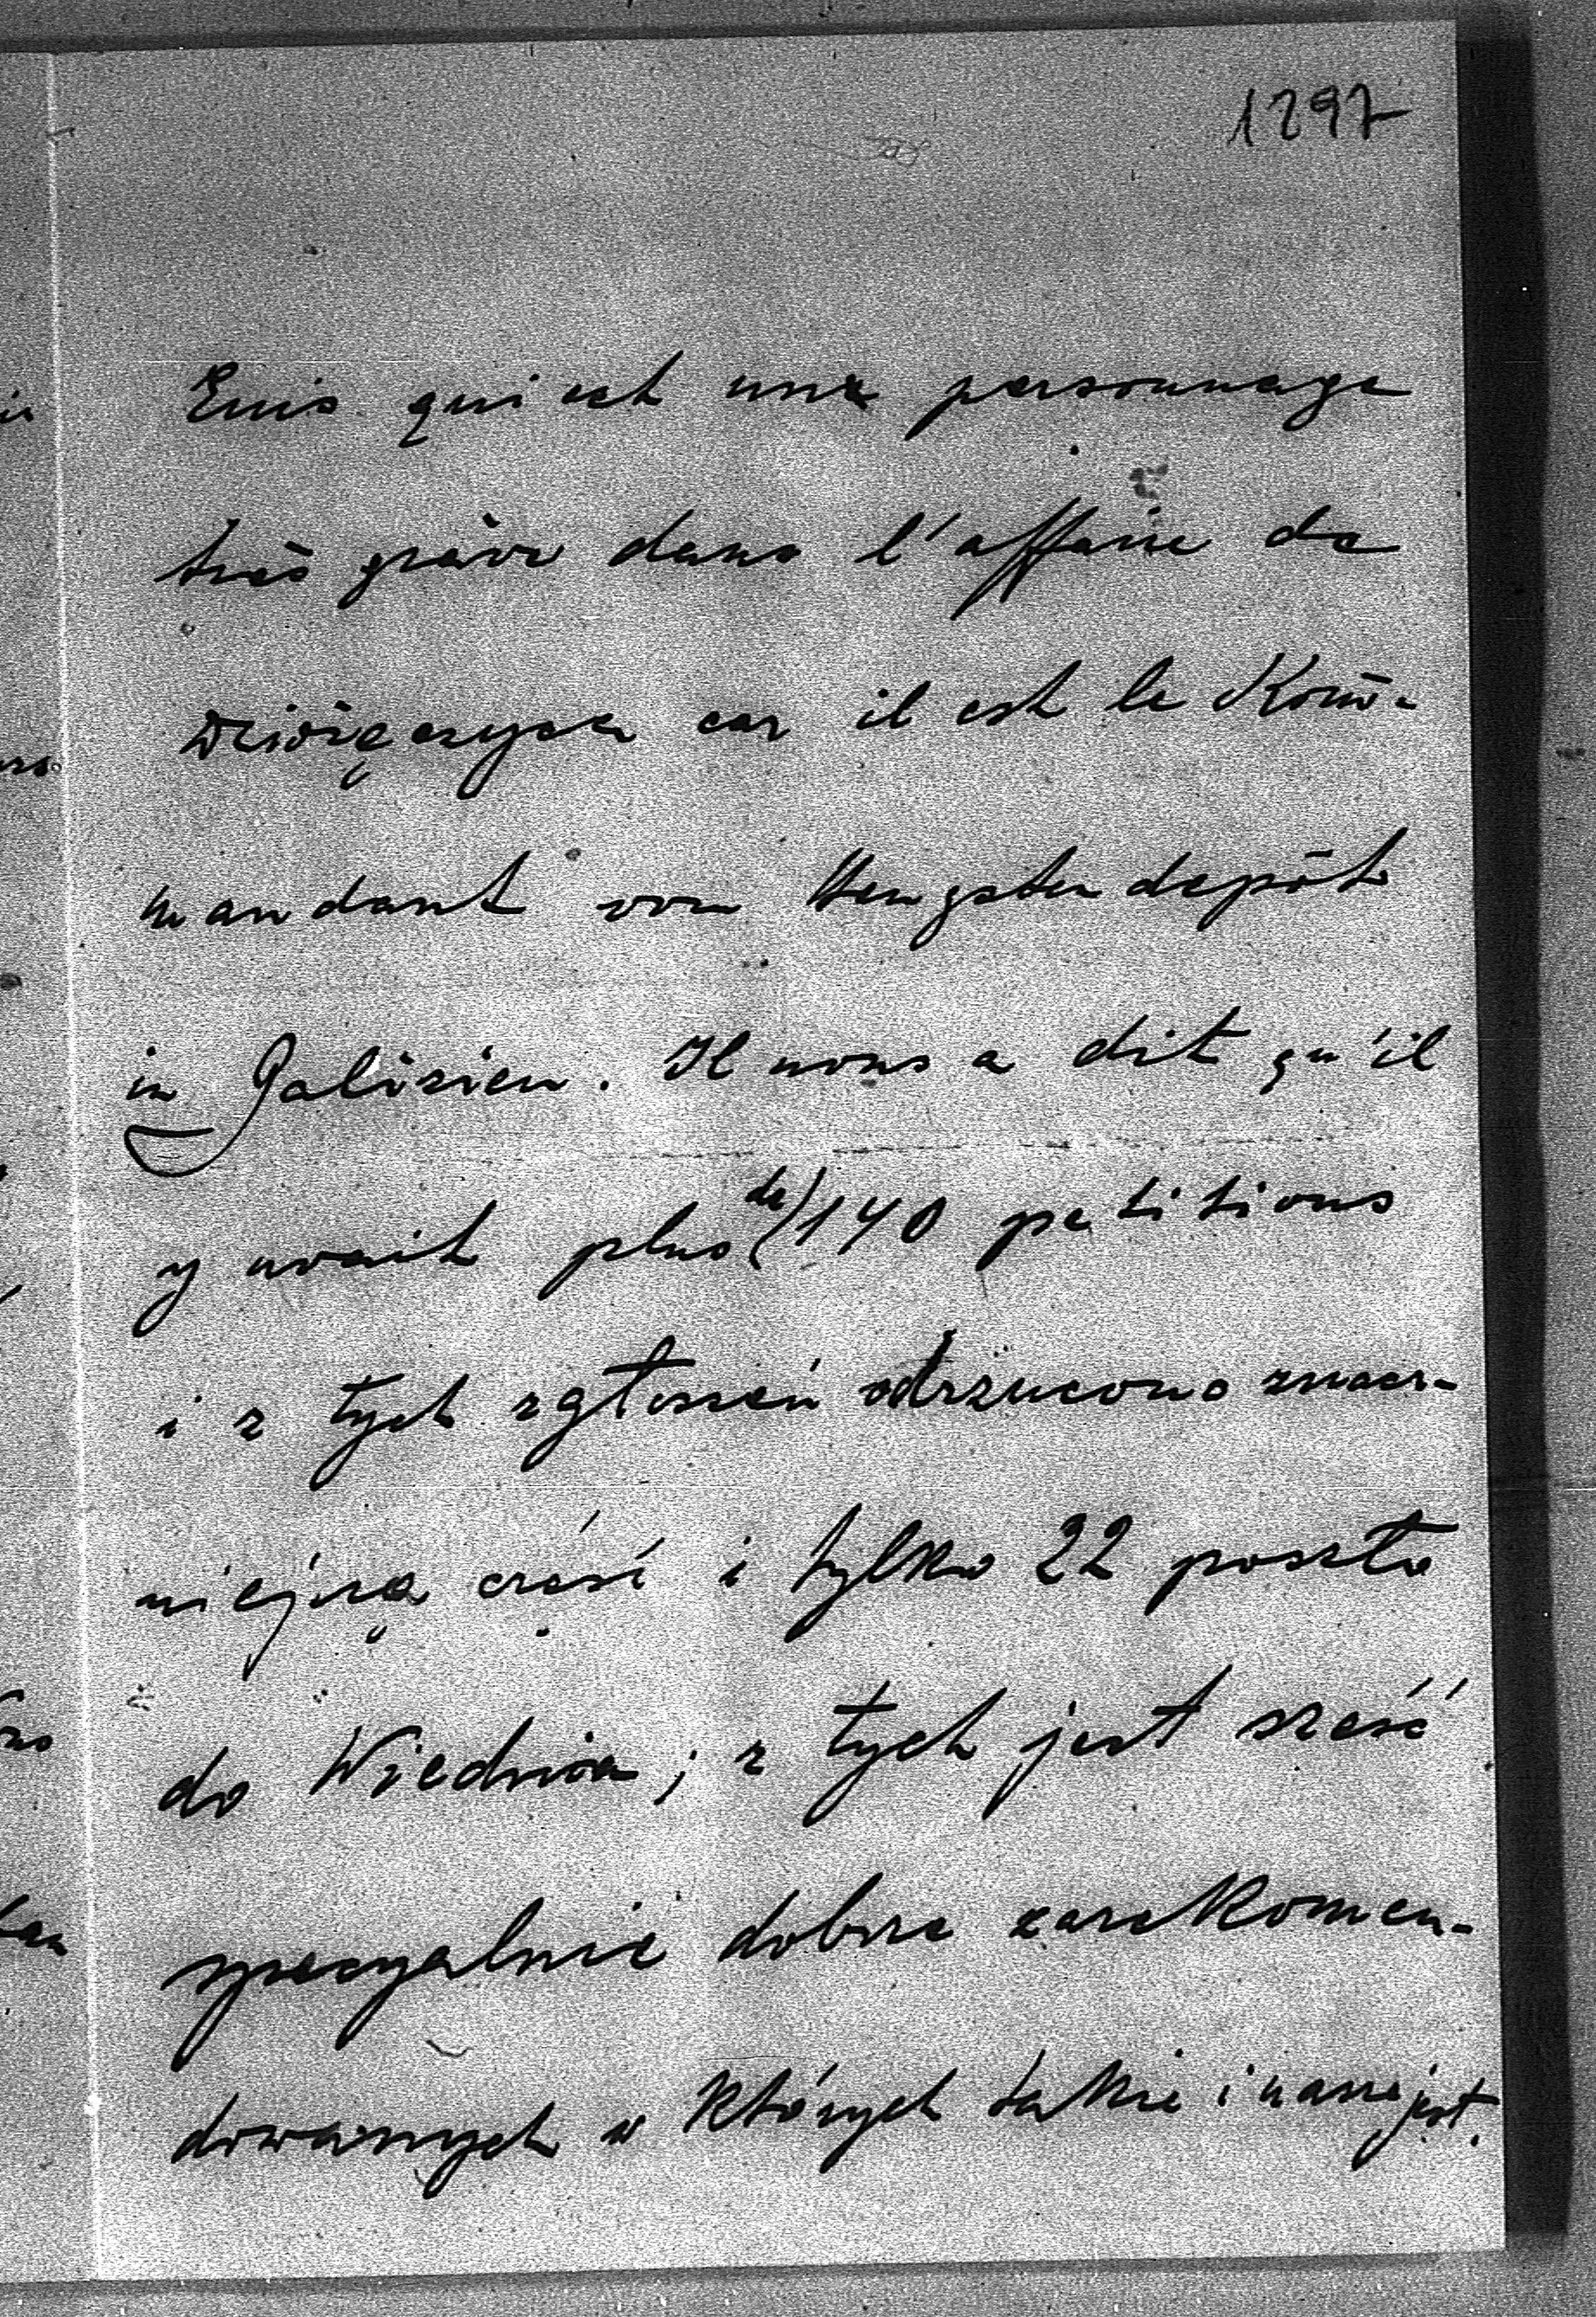 1297
Enis qui est une personnage
très grave dans l'affaire de
Dzieciżęcayca car il est le Kom̄-
mandant vom Hengstendepôt
in Galizien. Il nous a dit qu'il
y avait plus de 140 petitions
i z tych zgłoszeń odrzucono znacz-
niejszą część i tylko 22 poszło
do Wiednia; z tych jest sześć
specyalnie dobrze zarekomen-
dowanych w których także i nasze jest.